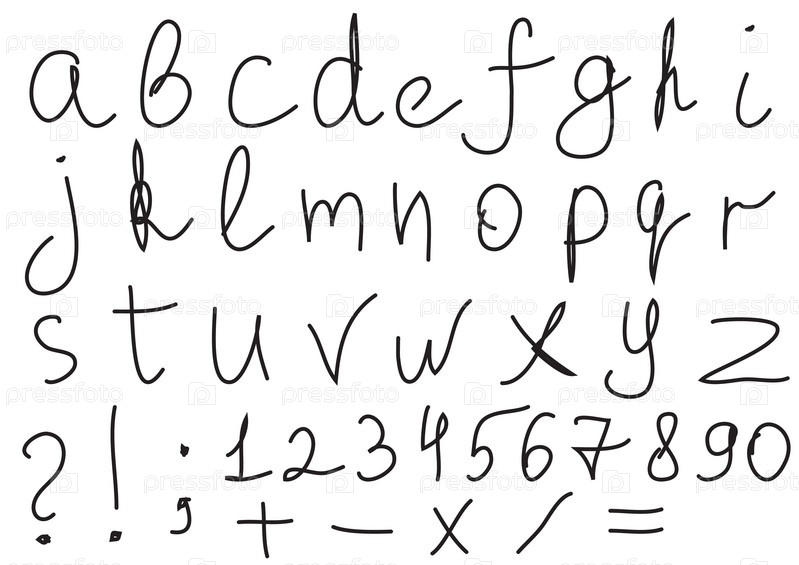 a b c d e f g h i
j k l m n o p q r
s t u v w x y z
? ! ; 1 2 3 4 5 6 7 8 9 0
+ − × / =
pressfoto